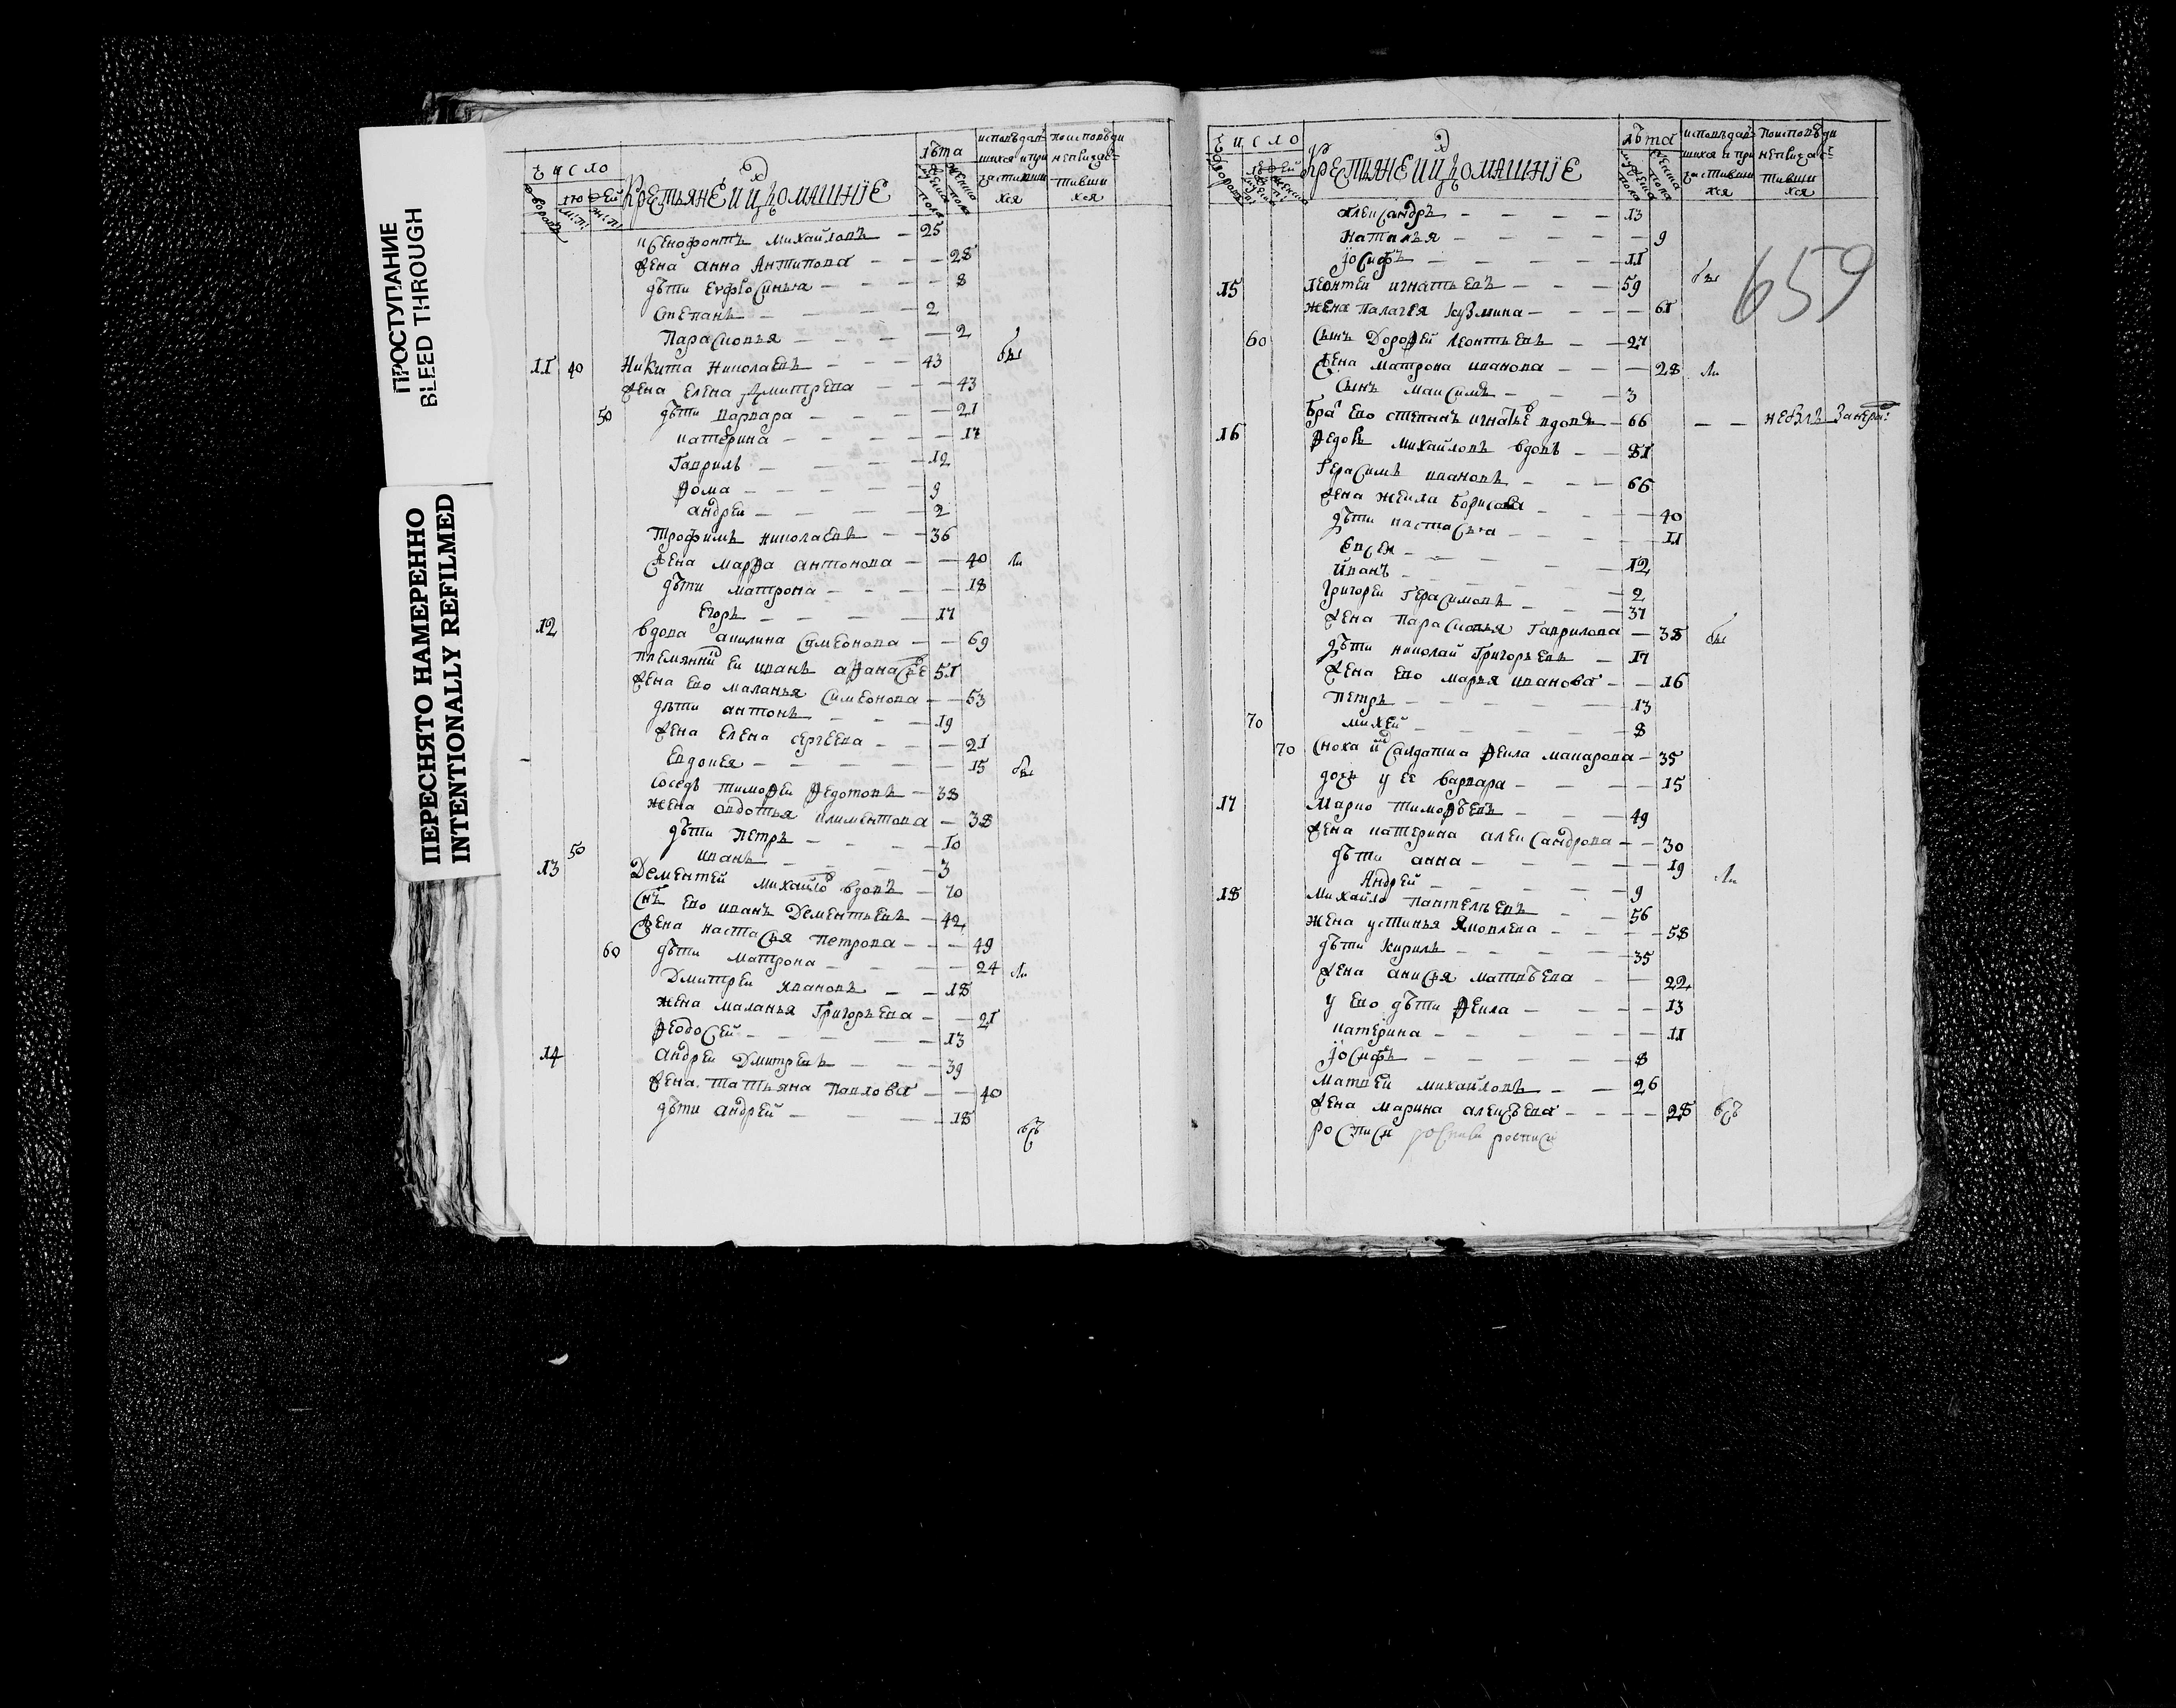 ПРОСТУПАНИЕ
BLEED THROUGH
ПЕРЕСНЯТО НАМЕРЕННО
INTENTIONALLY REFILMED
число
людей
крестьяне и их домашніе
лѣта
исповѣдав
шихся и при
частивши
хся
по исповѣди
непричас
тивши
хся
ксенофонтъ михайловъ 25
жена анна Антипова 28
дѣти Еуфросинья 8
степанъ 2
Парасковья 2
11 40 Никита Николаевъ 43
жена Елена дмитрева 43
50 дѣти варвара 21
катерина 17
Гаврилъ 12
Ѳома 9
андреи 2
трофимъ николаевъ 36
жена марѳа антонова 40
дѣти матрона 18
Егоръ 17
12 вдова акилина симеонова 69
племянни еи иванъ аѳанасье 51
жена ево маланья симеонова 53
дѣти антонъ 19
жена Елена сергеева 21
Евдокея 15
соседъ тимоѳеи Ѳедотовъ 38
жена авдотья климентова 38
дѣти петръ 10
50 иванъ 3
13 Дементей михайло вдовъ 70
снъ ево иванъ Дементьевъ 42
жена настасья петрова 49
60 дѣти матрона 24
Дмитреи ивановъ 18
жена маланья Григорьева 21
Ѳеодосей 13
14 андреи дмитревъ 39
жена татьяна павлова 40
дѣти андрей 18
число
людей
крестьяне и их домашніе
лѣта
исповѣдав
шихся и при
частивши
хся
по исповѣди
непричас
тивши
хся
659
александръ 13
наталья 9
іосифъ 11
15 леонтеи игнатьевъ 59
жена палагея кузмина 61
60 сынъ Дороѳей леонтьевъ 27
жена матрона иванова 28
сынъ максимъ 3
бра ево степанъ игнатье вдовъ 66 небылъ
16 Ѳедоръ михайловъ вдовъ 81
Герасимъ ивановъ 66
жена Борисова 40
дѣти настасья 11
12
иванъ 2
григореи герасимовъ 37
жена парасковья гаврилова 38
дѣти николай григорьевъ 17
жена ево марья иванова 16
петръ 13
70 михей 8
70 сноха салдатка Ѳекла макарова 35
дочь у ее варвара 15
17 Марко тимоѳѣевъ 49
жена катерина александрова 30
дѣти анна 19
Андрей 9
18 михайло пантелѣевъ 56
жена устинья Яковлева 58
дѣти кирилъ 35
жена анисья матвѣева 22
у ево дѣти Ѳекла 13
катерина 11
іосифъ 8
матвей михайловъ 26
жена марина алексѣева 28
росписи росписи росписи